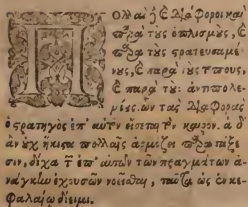 Πολλαὶ ἢ ἐ διάφοροι καὶ
παρὰ τὺς ὁπλισμὺς, ἐ
παρὰ τὺς στρατευομέ
νυς, ἐ παρὰ τὺς τόπους,
ἐ παρὰ τὺς ἀντιπολε-
μίυς. ὧν τὰς διαφορὰς
ὁ στρατηγὸς ἐπ' αὐτὴν εἴσεται τὸν καιρόν. ἃ δ'
ἂν οὐχ ἥκιστα πολλαῖς ἁρμόζει παρατάξε
σιν, δίχα τῆς ἐπ' αὐτῶν τῶν πραγμάτων ἀ-
νάγκης ἐχυσῶν νοεῖσθαι, ταῦτα ὡς ἐν κε-
φαλαίῳ δίειμι.